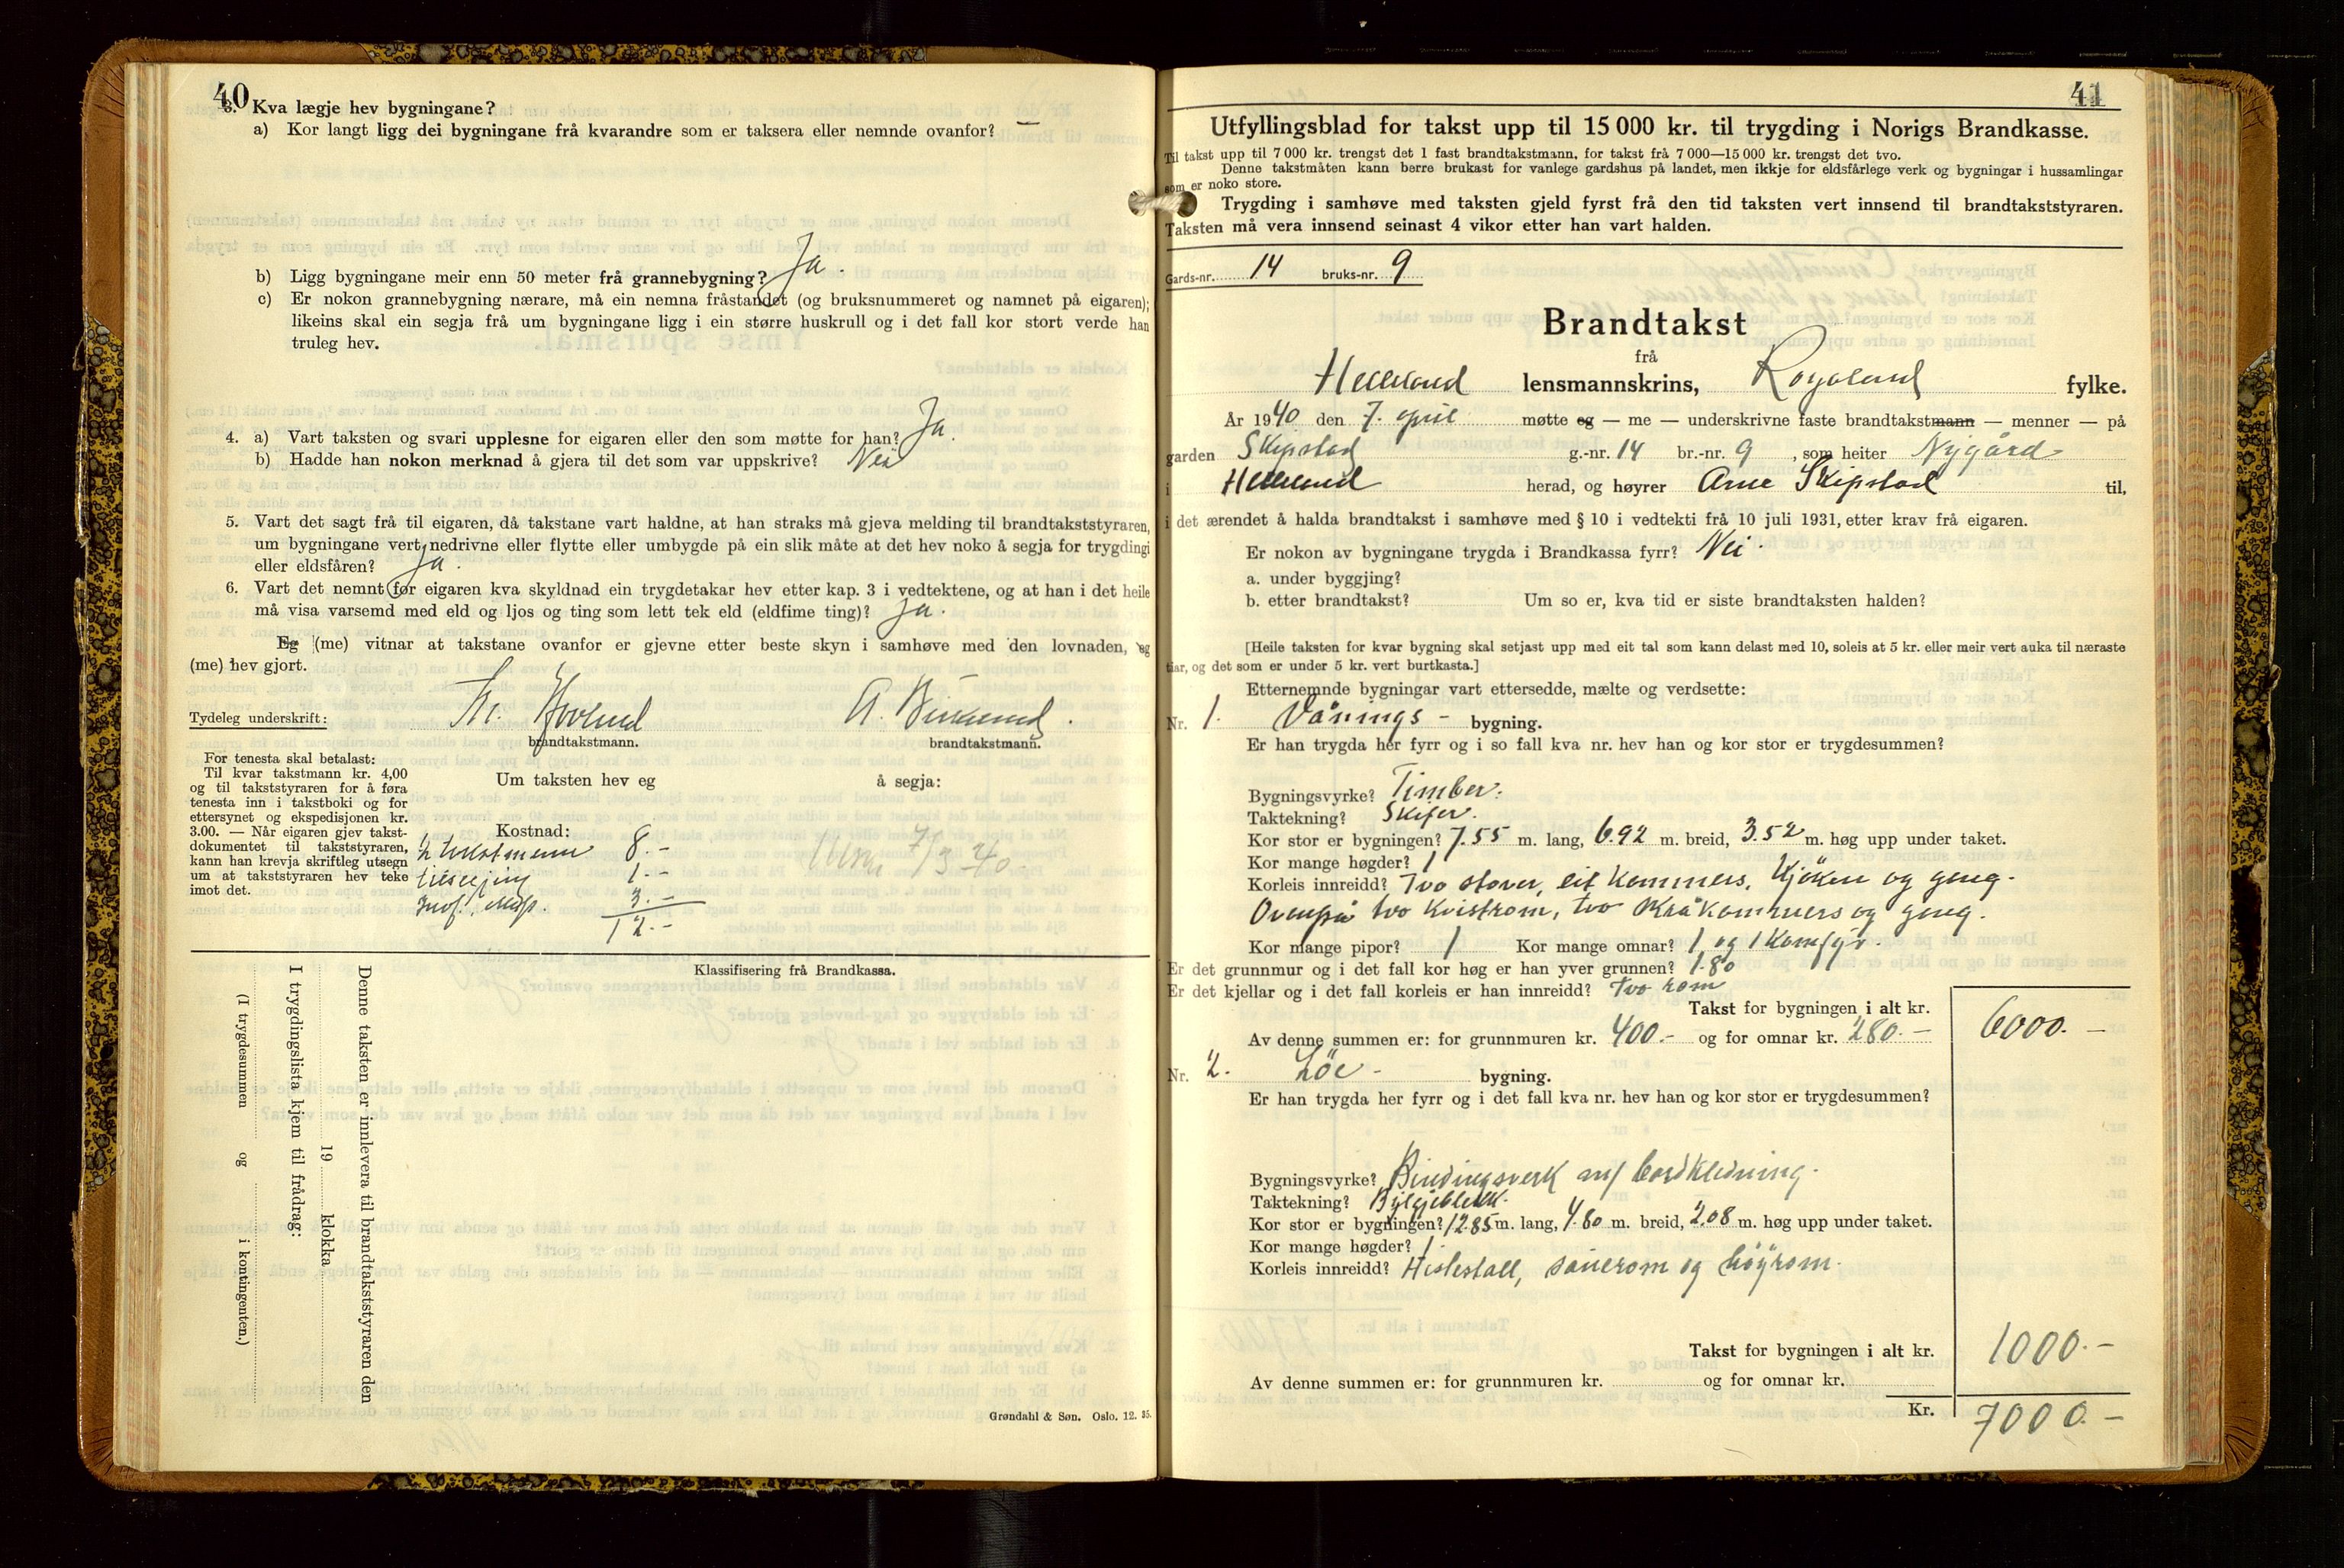 40
3. Kva lægje hev bygningane?
a) Kor langt ligg dei bygningane frå kvarandre som er taksera eller nemnde ovanfor? —
b) Ligg bygningane meir enn 50 meter frå grannebygning? Ja.
c) Er nokon grannebygning nærare, må ein nemna fråstandet (og bruksnummeret og namnet på eigaren);
likeins skal ein segja frå um bygningane ligg i ein større huskrull og i det fall kor stort verde han
truleg hev.
4. a) Vart taksten og svari upplesne for eigaren eller den som møtte for han? Ja.
b) Hadde han nokon merknad å gjera til det som var uppskrive? Nei
5. Vart det sagt frå til eigaren, då takstane vart haldne, at han straks må gjeva melding til brandtakststyraren,
um bygningane vert nedrivne eller flytte eller umbygde på ein slik måte at det hev noko å segja for trygdingi
eller eldsfåren? Ja.
6. Vart det nemnt for eigaren kva skyldnad ein trygdetakar hev etter kap. 3 i vedtektene, og at han i det heile
må visa varsemd med eld og ljos og ting som lett tek eld (eldfime ting)? Ja.
Eg (me) vitnar at takstane ovanfor er gjevne etter beste skyn i samhøve med den lovnaden, eg
(me) hev gjort.
Tydeleg underskrift: Kr. Hovland
brandtakstmann. brandtakstmann.
For tenesta skal betalast:
Til kvar takstmann kr. 4,00
og til takststyraren for å føra
tenesta inn i takstboki og for
ettersynet og ekspedisjonen kr.
3.00. — Når eigaren gjev takst-
dokumentet til takststyraren,
kann han krevja skriftleg utsegn
um at takststyraren hev teke
imot det.
Um taksten hev eg å segja:
Kostnad:
2 takstmenn 8.-
1.-
3.-
12.-
Klassifisering frå Brandkassa.
Denne taksten er innlevera til brandtakststyraren den
19 klokka
I trygdingslista kjem til frådrag:
(I trygdesummen og i kontingenten.)
Grøndahl & Søn. Oslo. 12. 35.
41
Utfyllingsblad for takst upp til 15 000 kr. til trygding i Norigs Brandkasse.
Til takst upp til 7 000 kr. trengst det 1 fast brandtakstmann, for takst frå 7 000—15 000 kr. trengst det tvo.
Denne takstmåten kann berre brukast for vanlege gardshus på landet, men ikkje for eldsfårlege verk og bygningar i hussamlingar
som er noko store.
Trygding i samhøve med taksten gjeld fyrst frå den tid taksten vert innsend til brandtakststyraren.
Taksten må vera innsend seinast 4 vikor etter han vart halden.
Gards-nr. 14 bruks-nr. 9
Brandtakst
frå
Helleland lensmannskrins, Rogaland fylke.
År 1940 den 7. april møtte eg — me — underskrivne faste brandtakstmann — menner — på
garden Skipstad g.-nr. 14 br.-nr. 9, som heiter Nygård
i Helleland herad, og høyrer Arne Skipstad til,
i det ærendet å halda brandtakst i samhøve med § 10 i vedtekti frå 10 juli 1931, etter krav frå eigaren.
Er nokon av bygningane trygda i Brandkassa fyrr? Nei.
a. under byggjing?
b. etter brandtakst? Um so er, kva tid er siste brandtaksten halden?
[Heile taksten for kvar bygning skal setjast upp med eit tal som kann delast med 10, soleis at 5 kr. eller meir vert auka til næraste
tiar, og det som er under 5 kr. vert burtkasta.]
Etternemnde bygningar vart ettersedde, mælte og verdsette:
Nr. 1. Vånings- bygning.
Er han trygda her fyrr og i so fall kva nr. hev han og kor stor er trygdesummen?
Bygningsvyrke? Timber.
Taktekning? Skifer.
Kor stor er bygningen? 7.55 m. lang, 6.92 m. breid, 3.52 m. høg upp under taket.
Kor mange høgder? 1
Korleis innreidd? Tvo stover, eit kammers, kjöken og gang.
Ovenpå tvo kvistrom, tvo skråkammers og gang.
Kor mange pipor? 1 Kor mange omnar? 1 og 1 komfyr.
Er det grunnmur og i det fall kor høg er han yver grunnen? 1.80
Er det kjellar og i det fall korleis er han innreidd? Tvo rom
Takst for bygningen i alt kr. 6000.-
Av denne summen er: for grunnmuren kr. 400.- og for omnar kr. 280.-
Nr. 2. Löe- bygning.
Er han trygda her fyrr og i det fall kva nr. hev han og kor stor er trygdesummen?
Bygningsvyrke? Bindingsverk m/ bordkledning.
Taktekning? Bylgjeblekk.
Kor stor er bygningen? 12.85 m. lang, 4.80 m. breid, 2.08 m. høg upp under taket.
Kor mange høgder? 1.
Korleis innreidd? Hestestall, sauerom og höyrom.
Takst for bygningen i alt kr. 1000.-
Av denne summen er: for grunnmuren kr. og for omnar kr.
Kr. 7000.-